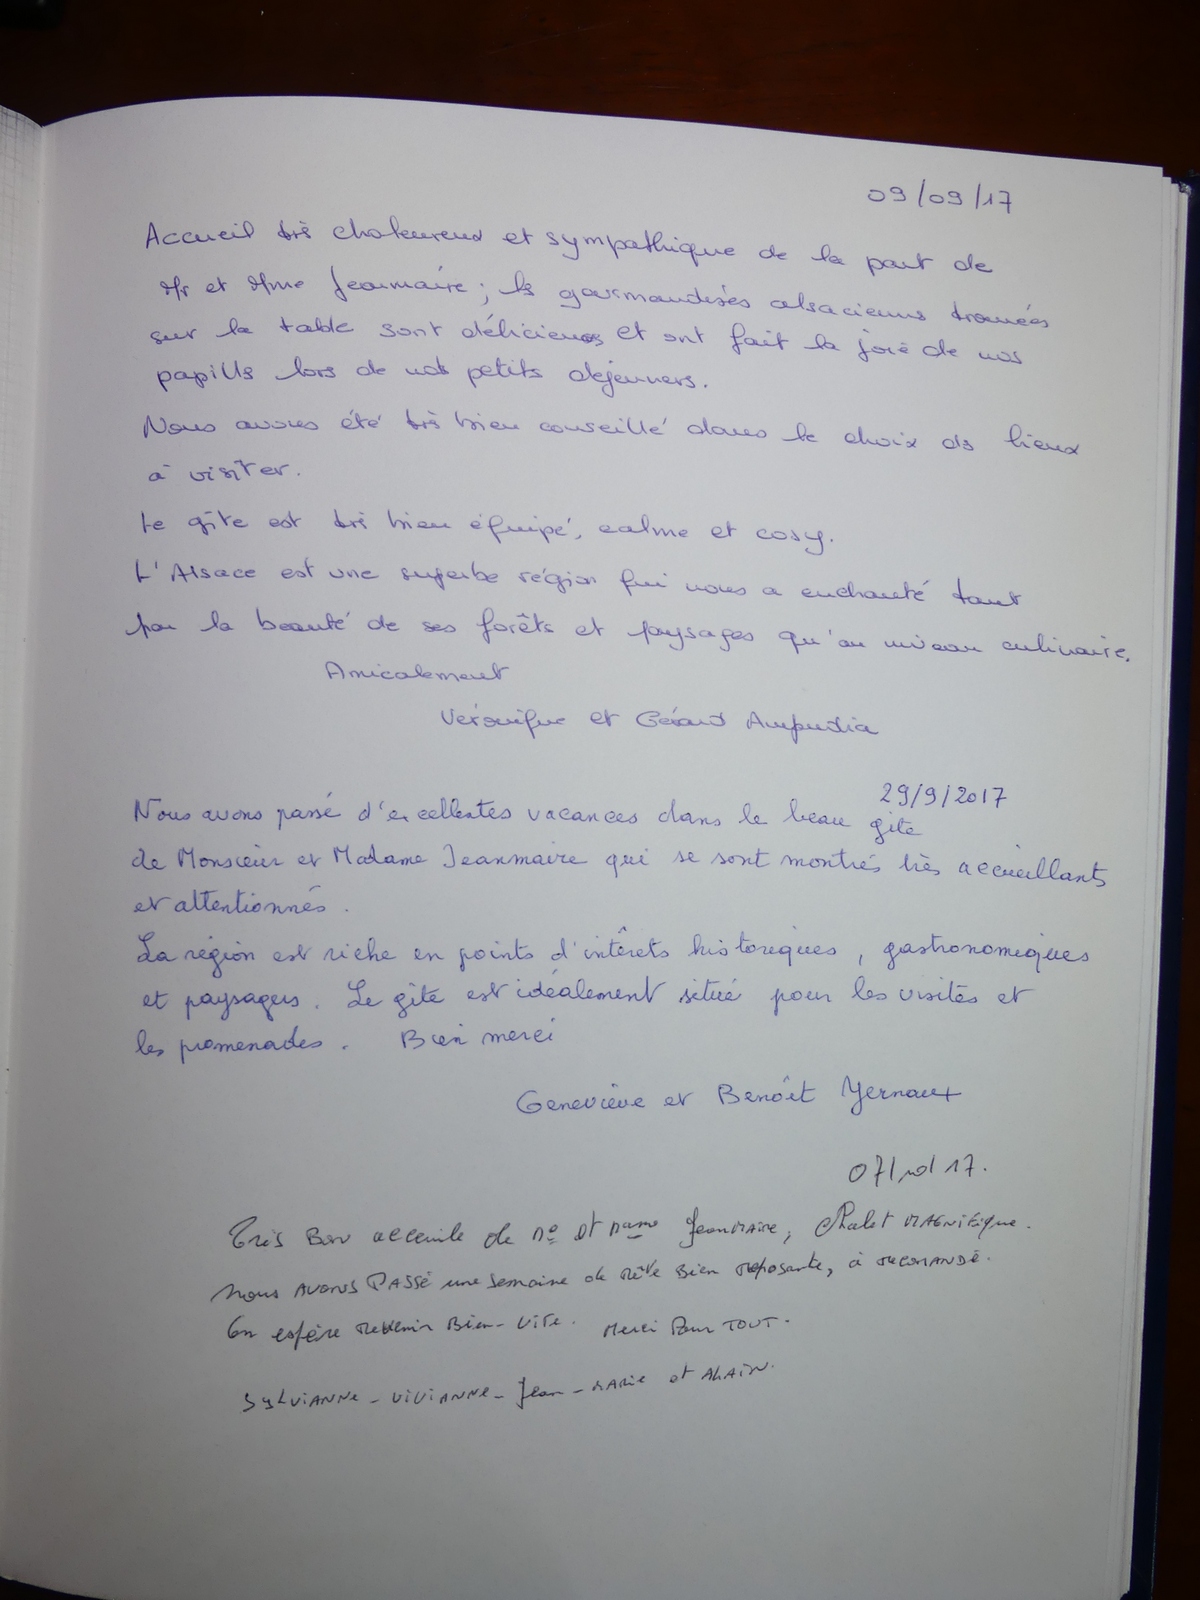 09/09/17
Accueil très chaleureux et sympathique de la part de
Mr et Mme Jeanmaire ; les gourmandises alsaciennes trouvées
sur la table sont délicieuses et ont fait la joie de nos
papilles lors de nos petits déjeuners.
Nous avons été très bien conseillé dans le choix des lieux
à visiter.
Le gîte est très bien équipé, calme et cosy.
L'Alsace est une superbe région qui nous a enchanté tant
par la beauté de ses forêts et paysages qu'au niveau culinaire.
Amicalement
Véronique et Gérard Ampudia
29/9/2017
Nous avons passé d'excellentes vacances dans le beau gîte
de Monsieur et Madame Jeanmaire qui se sont montrés très accueillants
et attentionnés.
La région est riche en points d'intêrets historiques, gastronomiques
et paysagers. Le gîte est idéalement situé pour les visites et
les promenades. Bien merci
Geneviève et Benoît Yernaux
07/10/17.
Très Bon acceuile de Mr et Mame JeanMaire, Chalet MAGNifique.
Nous AVONS PASSÉ une semaine de Rêve Bien Reposante, à recomandé.
On espère Revenir Bien-Vite. Merci Pour TOUT.
SylVIANNe - ViVIANNe - Jean-MARie et ALAIN.